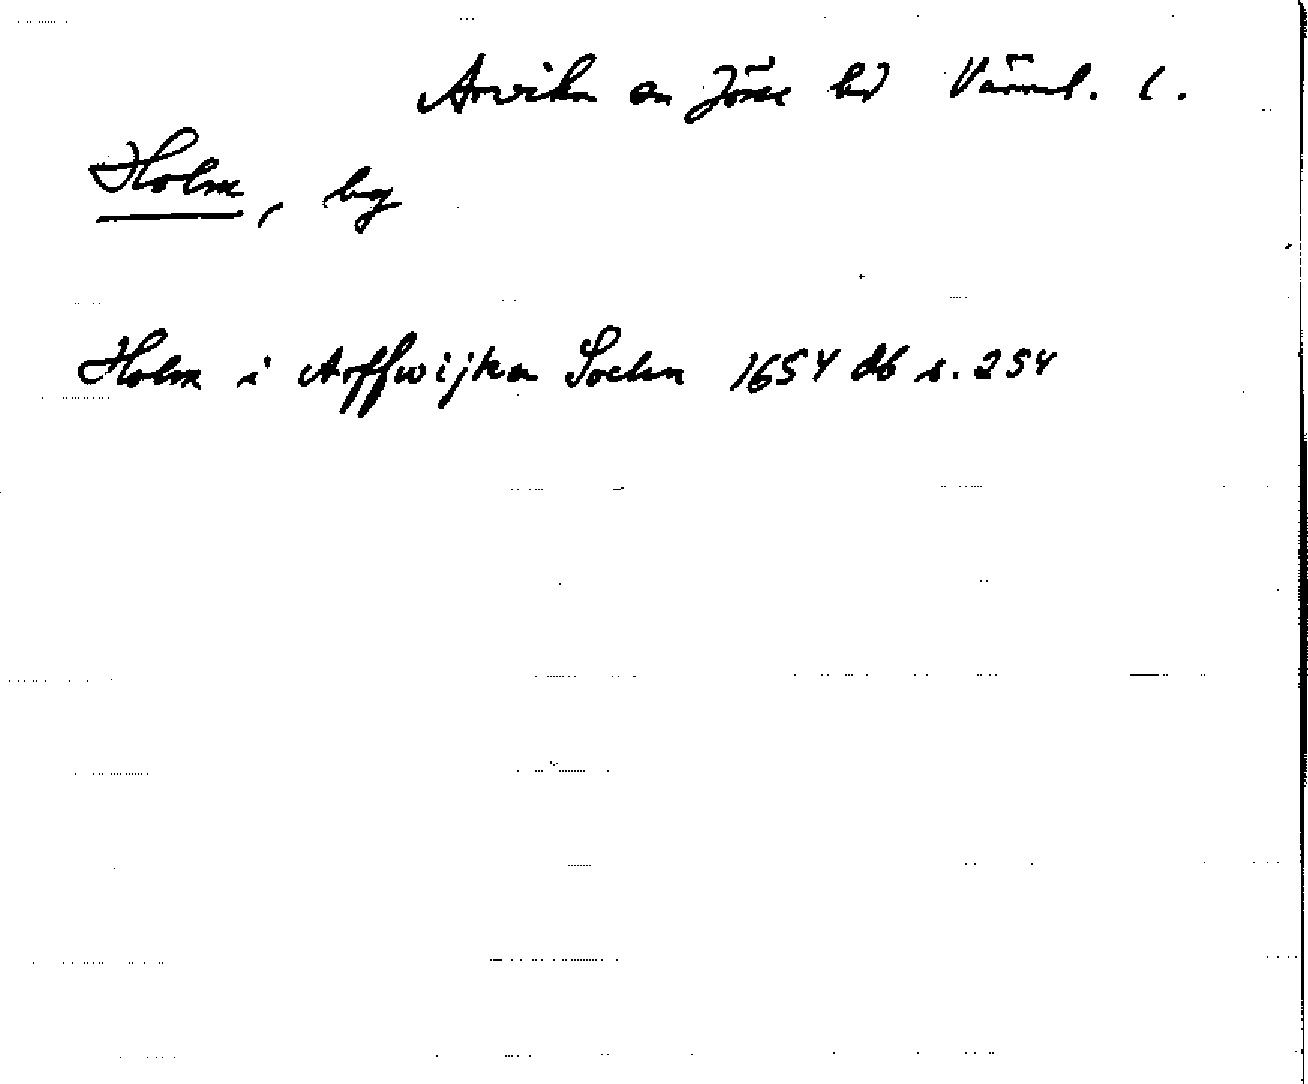 Arvika sn Jösse hd Värml. l.
Holm, by
Holm i Arffwijka Sochn 1654 db s. 254